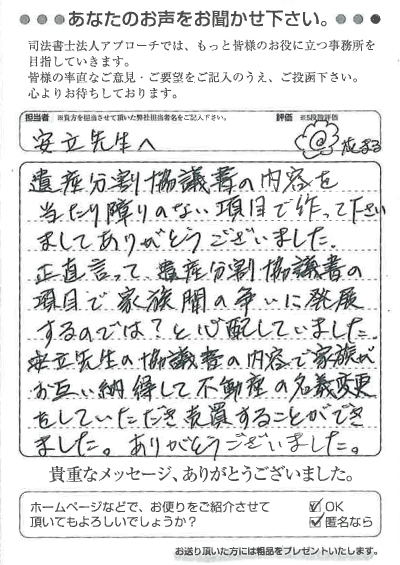 ●●●●あなたのお声をお聞かせ下さい。●●●●
司法書士法人アプローチでは、もっと皆様のお役に立つ事務所を
目指していきます。
皆様の率直なご意見・ご要望をご記入のうえ、ご投函下さい。
心よりお待ちしております。
担当者 ※貴方を担当させて頂いた弊社担当者名をご記入下さい。 評価 ※5段階評価
安立先生へ ⑤ 花まる
遺産分割協議書の内容を
当たり障りのない項目で作って下さい
ましてありがとうございました。
正直言って、遺産分割協議書の
項目で家族間の争いに発展
するのでは?と心配していました。
安立先生の協議書の内容で家族が
お互い納得して不動産の名義変更
をしていただき売買することができ
ました。ありがとうございました。
貴重なメッセージ、ありがとうございました。
ホームページなどで、お便りをご紹介させて
頂いてもよろしいでしょうか?
☑OK
☑匿名なら
お送り頂いた方には粗品をプレゼントいたします。